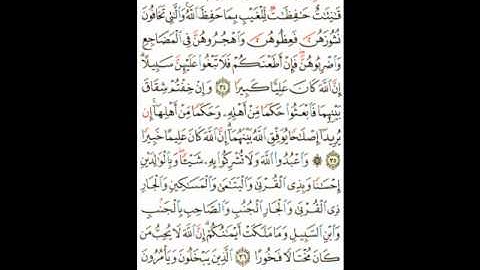 قَٰنِتَٰتٌ حَٰفِظَٰتٌ لِّلْغَيْبِ بِمَا حَفِظَ ٱللَّهُ وَٱلَّٰتِى تَخَافُونَ
نُشُوزَهُنَّ فَعِظُوهُنَّ وَٱهْجُرُوهُنَّ فِى ٱلْمَضَاجِعِ
وَٱضْرِبُوهُنَّ فَإِنْ أَطَعْنَكُمْ فَلَا تَبْغُوا۟ عَلَيْهِنَّ سَبِيلًا
إِنَّ ٱللَّهَ كَانَ عَلِيًّا كَبِيرًا ٣٤ وَإِنْ خِفْتُمْ شِقَاقَ
بَيْنِهِمَا فَٱبْعَثُوا۟ حَكَمًا مِّنْ أَهْلِهِۦ وَحَكَمًا مِّنْ أَهْلِهَآ إِن
يُرِيدَآ إِصْلَٰحًا يُوَفِّقِ ٱللَّهُ بَيْنَهُمَآ إِنَّ ٱللَّهَ كَانَ عَلِيمًا خَبِيرًا
٣٥ وَٱعْبُدُوا۟ ٱللَّهَ وَلَا تُشْرِكُوا۟ بِهِۦ شَيْـًٔا وَبِٱلْوَٰلِدَيْنِ
إِحْسَٰنًا وَبِذِى ٱلْقُرْبَىٰ وَٱلْيَتَٰمَىٰ وَٱلْمَسَٰكِينِ وَٱلْجَارِ
ذِى ٱلْقُرْبَىٰ وَٱلْجَارِ ٱلْجُنُبِ وَٱلصَّاحِبِ بِٱلْجَنۢبِ
وَٱبْنِ ٱلسَّبِيلِ وَمَا مَلَكَتْ أَيْمَٰنُكُمْ إِنَّ ٱللَّهَ لَا يُحِبُّ مَن
كَانَ مُخْتَالًا فَخُورًا ٣٦ ٱلَّذِينَ يَبْخَلُونَ وَيَأْمُرُونَ